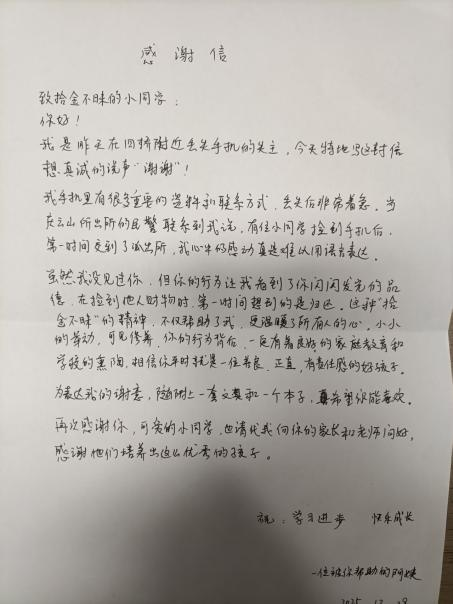 感谢信
致拾金不昧的小同学：
你好！
我是昨天在四桥附近丢失手机的失主，今天特地写这封信
想真诚的说声“谢谢”！
我手机里有很多重要的资料和联系方式，丢失后非常着急。当
云山派出所的民警联系到我说，有位小同学捡到手机后，
第一时间交到了派出所，我心中的感动真是难以用语言表达。
虽然我没见过你，但你的行为让我看到了你闪闪发光的品
德，在捡到他人财物时，第一时间想到的是归还。这种“拾
金不昧”的精神，不仅帮助了我，更温暖了所有人的心。小小
的举动，可见修养，你的行为背后，一定有着良好的家庭教育和
学校的熏陶，相信你平时就是一位善良、正直、有责任感的好孩子。
为表达我的谢意，随附上一套文具和一个本子，真希望你能喜欢。
再次感谢你，可爱的小同学，也请代我向你的家长和老师问好，
感谢他们培养出这么优秀的孩子。
祝：学习进步 快乐成长
一位被你帮助的阿姨
2025.12.29